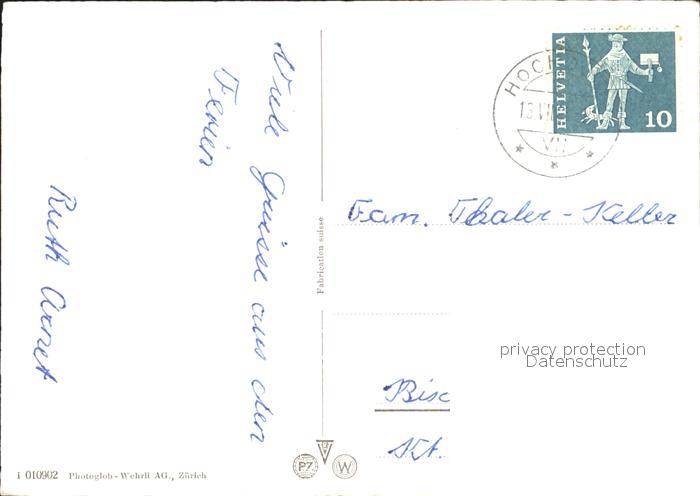 Viele Grüsse aus den
Ferien
Ruth Arnet
HELVETIA
10
HOCH
13.VII
VII
Fam. Thaler-Keller
Fabrication suisse
privacy protection
Datenschutz
Bisc
Kt.
PZ
W
i 010902 Photoglob-Wehrli AG., Zürich